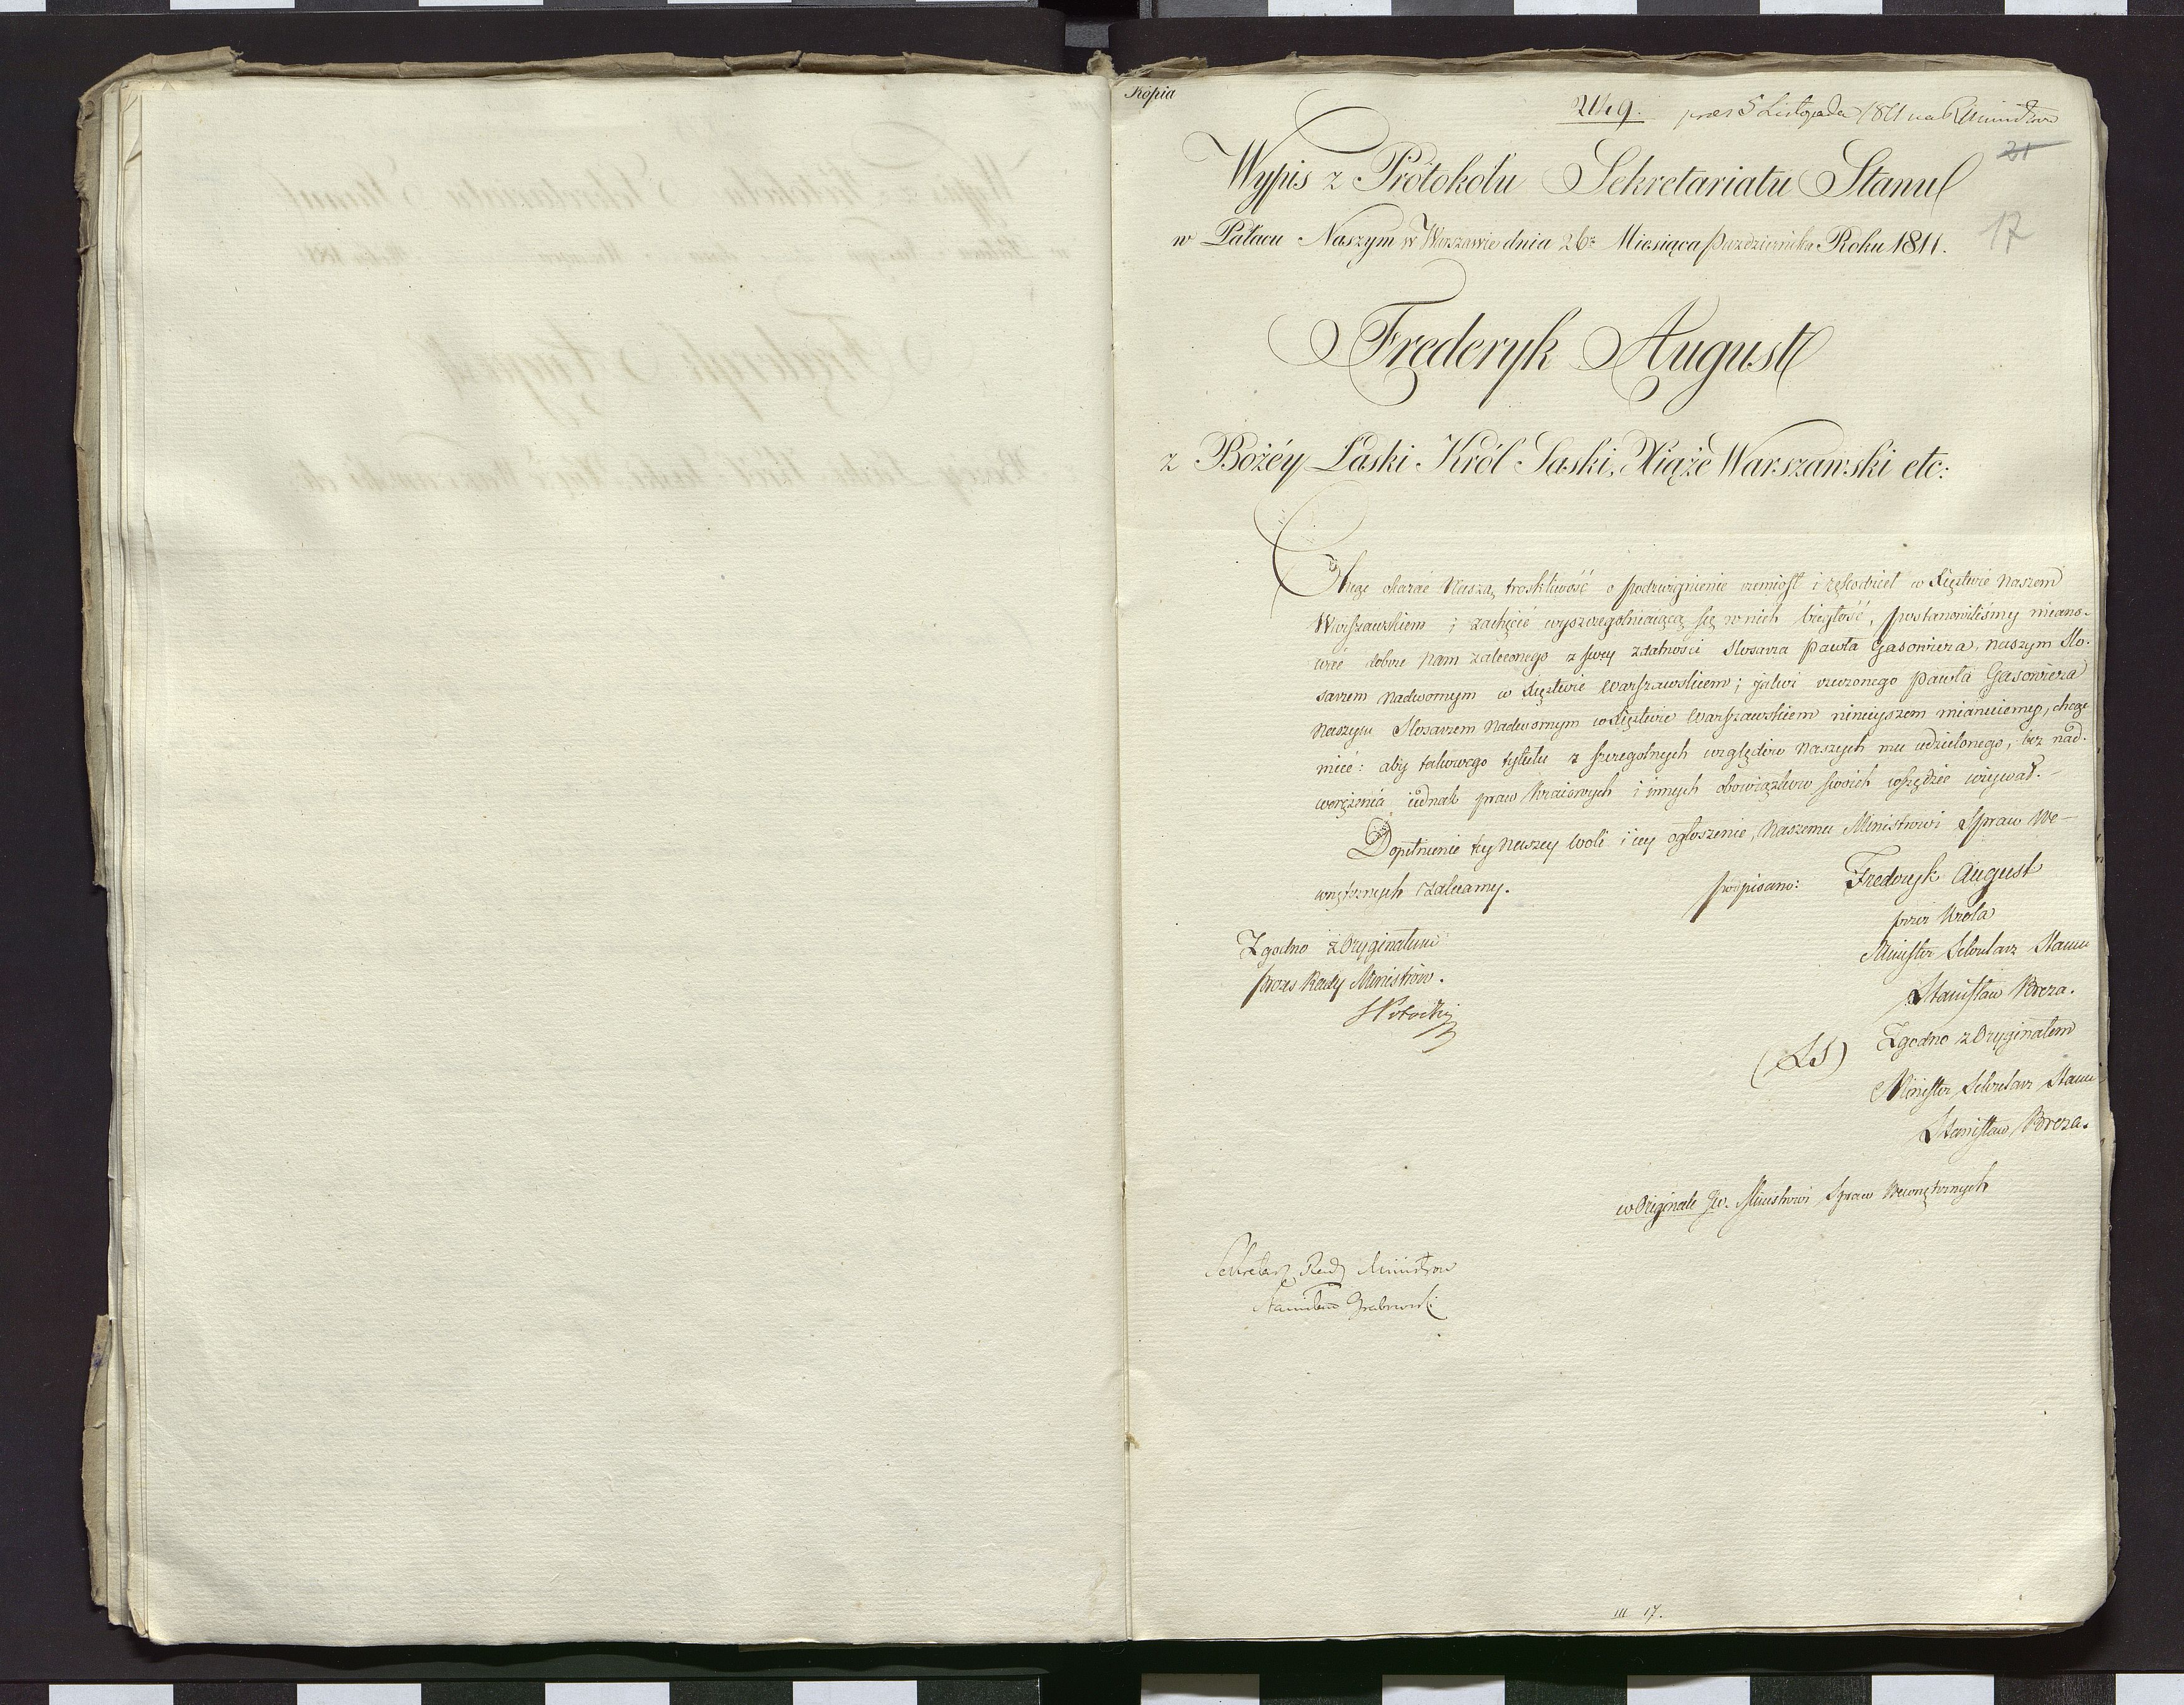 Kopia
2149. prez 5 Listopada 1811 na R Ministrow
21
Wypis z Protokołu Sekretariatu Stanu
w Pałacu Naszym w Warszawie dnia 26º Miesiąca października Roku 1811.
17
Frederyk August
z Bożéy Łaski Król Saski, Xiąże Warszawski etc:
Chcąc okazać Naszą troskliwość o podzwignienie rzemiosł i rękodzieł w Xięstwie Naszem
Warszawskiem i zachęcić wyszczegolniaiącą się w nich biegłość, postanowiliśmy miano-
wać dobrze Nam zaleconego z swey zdatności Slosarza Pawła Gasowicza, Naszym Slo-
sarzem Nadwornym w Xięstwie Warszawskiem; jakoż rzeczonego Pawła Gasowicza
Naszym Slosarzem Nadwornym w Xięstwie Warszawskiem ninieyszem mianuiemy, chcąc
mieć: aby takowego tytułu z szczegolnych względow Naszych mu udzielonego, bez nad-
werężenia iednak praw Kraiowych i innych obowiązkow swoich wszędzie używał.-
Dopełnienie tey Naszey woli i iey ogłoszenie, Naszemu Ministrowi Spraw We-
wnętrznych zalecamy.
podpisano: Frederyk August
przez Krola
Minister Sekretarz Stanu
Stanisław Breza.
Zgodno z Oryginałem
Prezes Rady Ministrow.
SPotocki
(LS) Zgodno z Oryginałem
Minister Sekretarz Stanu
Stanisław Breza.
w Originale JW. Ministrowi Spraw Wewnętrznych
Sekretarz Rady Ministrow
Stanisław Grabowski
III 17.